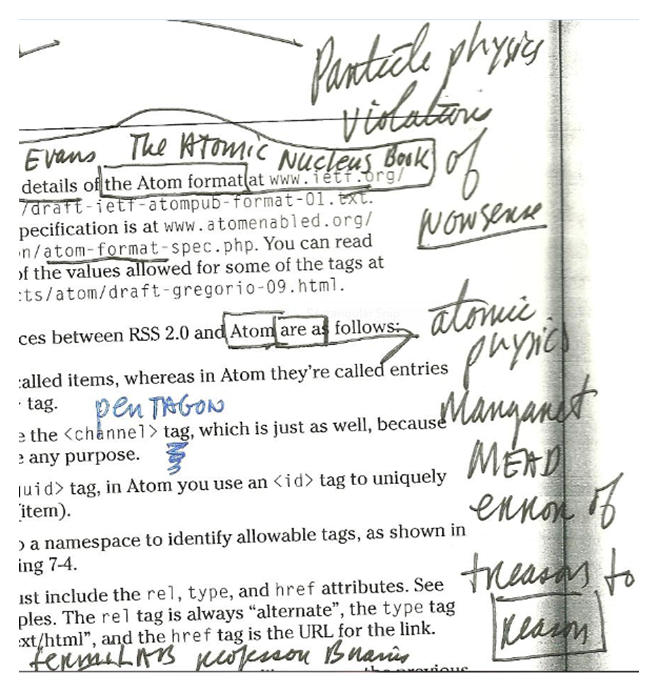 Particle physics
violations
of
Nonsense
Evans The Atomic Nucleus Book
details of the Atom format at www.ietf.org/
/draft-ietf-atompub-format-01.txt.
pecification is at www.atomenabled.org/
n/atom-format-spec.php. You can read
of the values allowed for some of the tags at
ts/atom/draft-gregorio-09.html.
ces between RSS 2.0 and Atom are as follows:
atomic
physics
alled items, whereas in Atom they're called entries
tag.
penTAGON
Margaret
e the <channel> tag, which is just as well, because
e any purpose.
MEAD
uid> tag, in Atom you use an <id> tag to uniquely
item).
error of
o a namespace to identify allowable tags, as shown in
ing 7-4.
treason to
reason
ust include the rel, type, and href attributes. See
ples. The rel tag is always "alternate", the type tag
xt/html", and the href tag is the URL for the link.
fermiLAB professor
previous